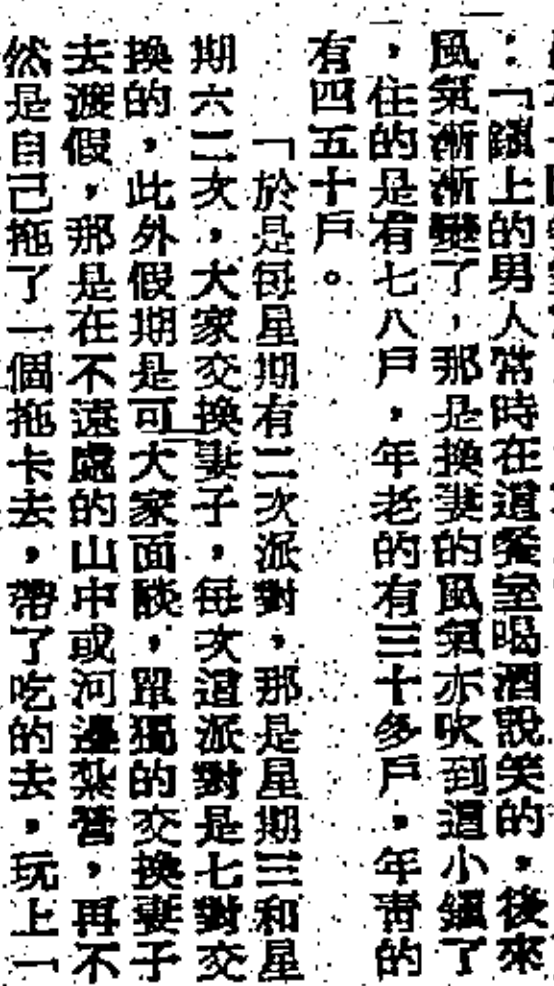 ：「鎮上的男人常時在這餐室喝酒說笑的，後來
風氣漸漸變了，那是換妻的風氣亦吹到這小鎮了
，住的是有七八戶，年老的有三十多戶，年青的
有四五十戶。
「於是每星期有二次派對，那是星期三和星
期六二次，大家交換妻子，每次這派對是七對交
換的，此外假期是可大家面談，單獨的交換妻子
去渡假，那是在不遠處的山中或河邊紮營，再不
然是自己拖了一個拖卡去，帶了吃的去，玩上一